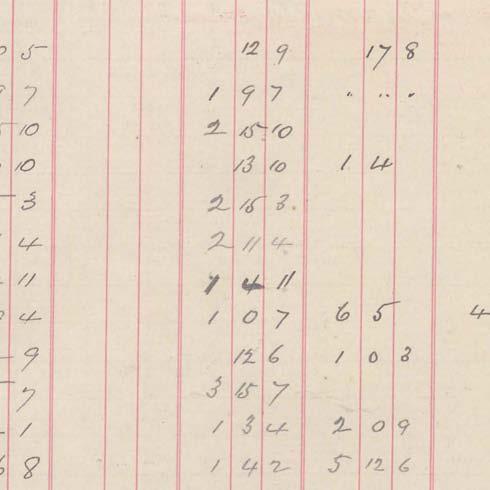 5 12 9 17 8
7 1 9 7 " " "
10 2 15 10
10 13 10 1 4
3 2 15 3
4 2 11 4
11 1 4 11
4 1 0 7 6 5 4
9 12 6 1 0 3
7 3 15 7
1 1 3 4 2 0 9
8 1 4 2 5 12 6